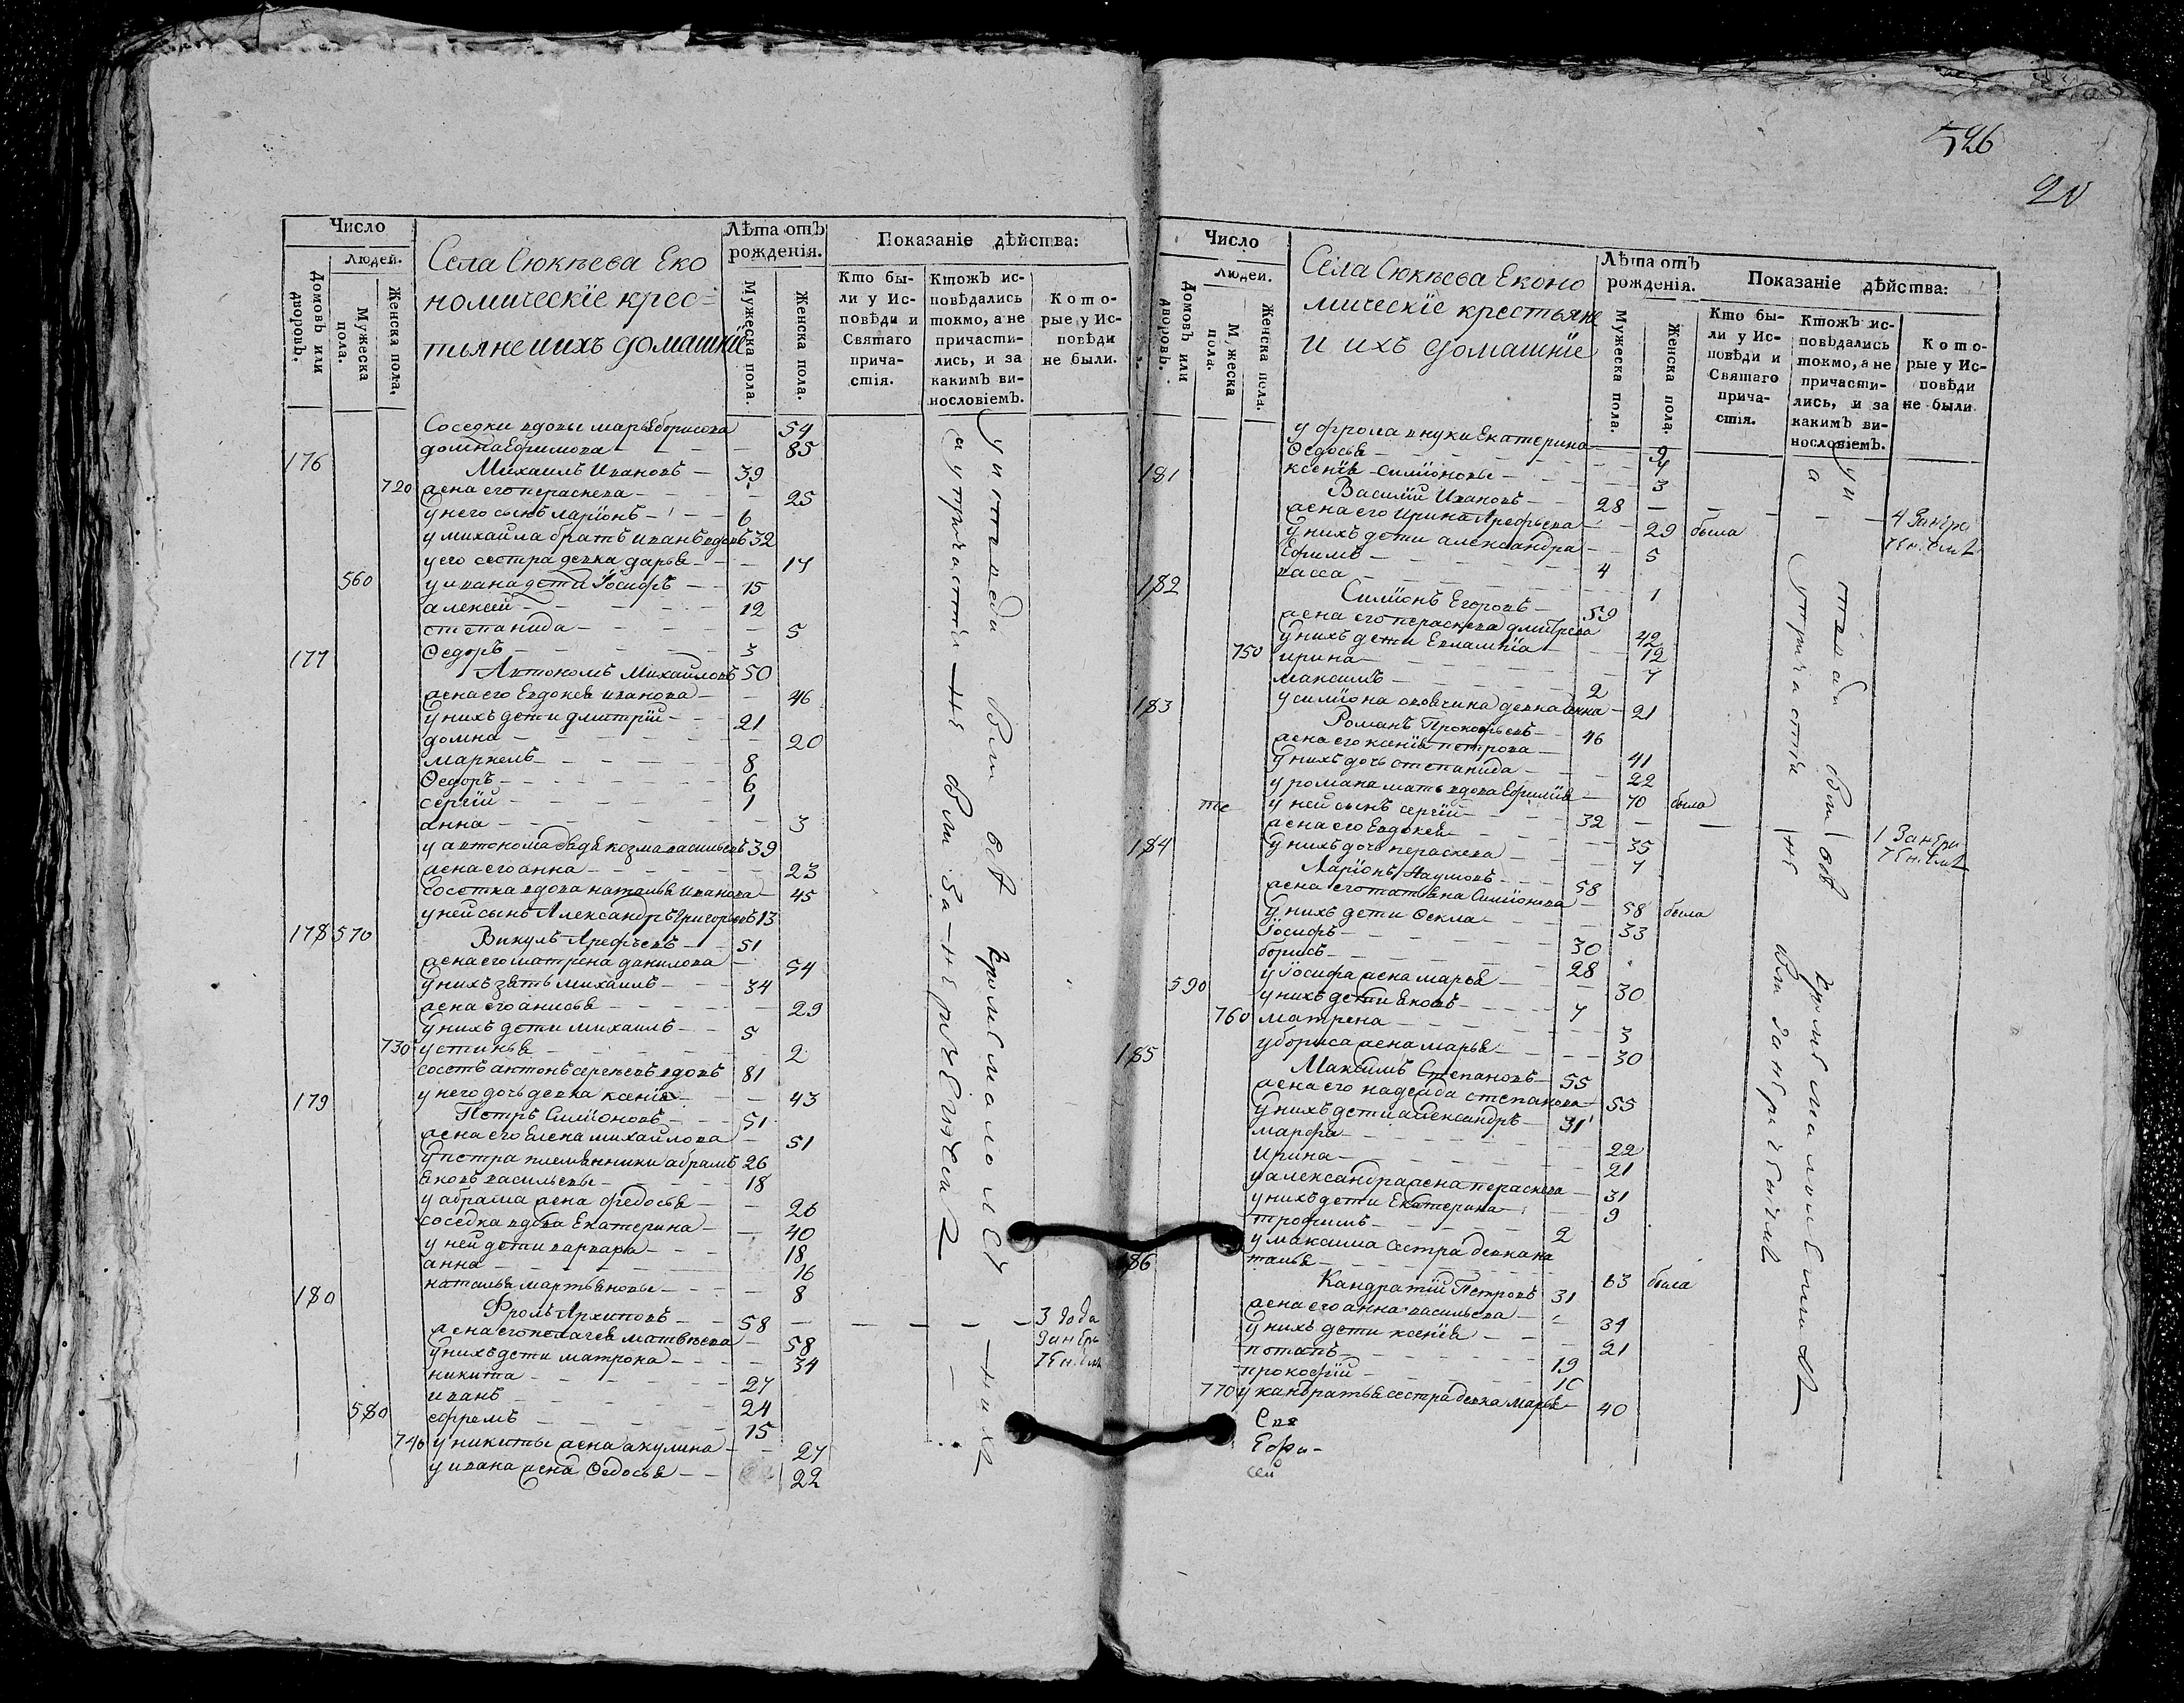 526
20
Число
Людей.
Домовъ или дворовъ.
Мужеска пола.
Женска пола.
Села Сюкѣева Еко
номическїе крес=
тьяне и ихъ домашнїе
Лѣта отъ рожденія.
Мужеска пола.
Женска пола.
Показаніе дѣйства:
Кто бы-
ли у Ис-
повѣди и
Святаго
прича-
стія.
Ктожъ ис-
повѣдались
токмо, а не
причасти-
лись, и за
какимъ ви-
нословіемъ.
Кото-
рые у Ис-
повѣди
не были.
Соседки вдовы марья борисова 54
домна Ефимова 85
176 Михаилъ Ивановъ 39
720 жена его параскева 25
у него сынъ ларїонъ 6
у михаила братъ иванъ вдовъ 32
у его сестра девка дарья 17
560 у ивана дети Їосифъ 15
алексей 12
степанида 5
Ѳедоръ 3
177 Автономъ Михаиловъ 50
жена его Евдокея иванова 46
у нихъ дети дмитрїй 21
домна 20
маркелъ 8
Ѳедоръ 6
сергїй 1
анна 3
у автонома дядя козма васильевъ 39
жена его анна 23
соседка вдова наталья иванова 45
у ней сынъ Александръ григорьевъ 13
178 570 Викулъ Арефьевъ 51
жена его матрена данилова 54
у нихъ зять михаилъ 34
жена его анисья 29
у нихъ дети михаилъ 5
730 устинья 2
соседъ антонъ сергеевъ вдовъ 81
у него дочь девка ксенїя 43
179 Петръ Симїоновъ 51
жена его Елена михайлова 51
у петра племянники абрамъ 26
яковъ васильевы 18
у абрама жена федосья 26
соседка вдова Екатерина 40
у ней дети варвара 18
анна 16
наталья мартьяновы 8
180 Фролъ Архиповъ 58
жена его пелагея матвѣева 58
у нихъ дети матрона 34
никита 27
иванъ 24
580 ефремъ 15
740 у никиты жена акулина 27
у ивана жена Ѳедосья 22
3 года
Число
Людей.
Домовъ или дворовъ.
Мужеска пола.
Женска пола.
Села Сюкѣева Еконо
мическїе крестьяне
и ихъ домашнїе
Лѣта отъ рожденія.
Мужеска пола.
Женска пола.
Показаніе дѣйства:
Кто бы-
ли у Ис-
повѣди и
Святаго
прича-
стія.
Ктожъ ис-
повѣдались
токмо, а не
причасти-
лись, и за
какимъ ви-
нословіемъ.
Кото-
рые у Ис-
повѣди
не были.
у фрола внуки Екатерина 9
Ѳедосья 4
ксенїя симїоновы 3
181 Василїй Ивановъ 28
жена его Ирина Арефьева 29 была
у нихъ дети александра 5
Ефимъ 4
васса 1
182 Симїонъ Егоровъ 59
жена его параскева дмитрева 42
у нихъ дети Евлампїа 12
750 ирина 7
максимъ 2
у симїона девка анна 21
183 Романъ Прокофьевъ 46
жена его ксенїя петрова 41
у нихъ дочь степанида 22
у романа мать вдова Ефимїя 70 была
у ней сынъ сергїй 32
жена его Евдокея 35
у нихъ дочь параскева 7
184 Ларїонъ Наумовъ 58
жена его татьяна Симїонова 58 была
у нихъ дети Ѳекла 33
Їосифъ 30
борисъ 28
у Їосифа жена марья 30
590 у нихъ дети яковъ 7
760 матрена 3
у бориса жена марья 30
185 Максимъ Степановъ 55
жена его надежда степанова 55
у нихъ дети александръ 31
марфа 22
Ирина 21
у александра жена параскева 31
у нихъ дети Екатерина 9
трофимъ 2
у максима сестра девка на
талья 63 была
186 Кандратїй Петровъ 31
жена его анна васильева 34
у нихъ дети ксенїя 21
потапъ 19
прокофїй 10
770 у кандратья сестра девка марья 40
Свя
Ефи-
сей